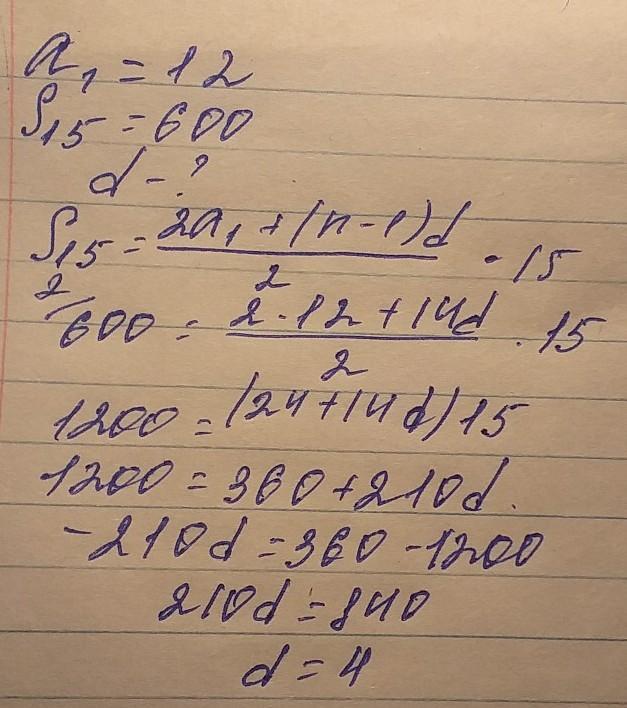 a₁ = 12
S₁₅ = 600
d - ?
S₁₅ = (2a₁ + (n - 1)d)/2 · 15
2/ 600 = (2 · 12 + 14d)/2 · 15
1200 = (24 + 14d) 15
1200 = 360 + 210d.
-210d = 360 - 1200
210d = 840
d = 4